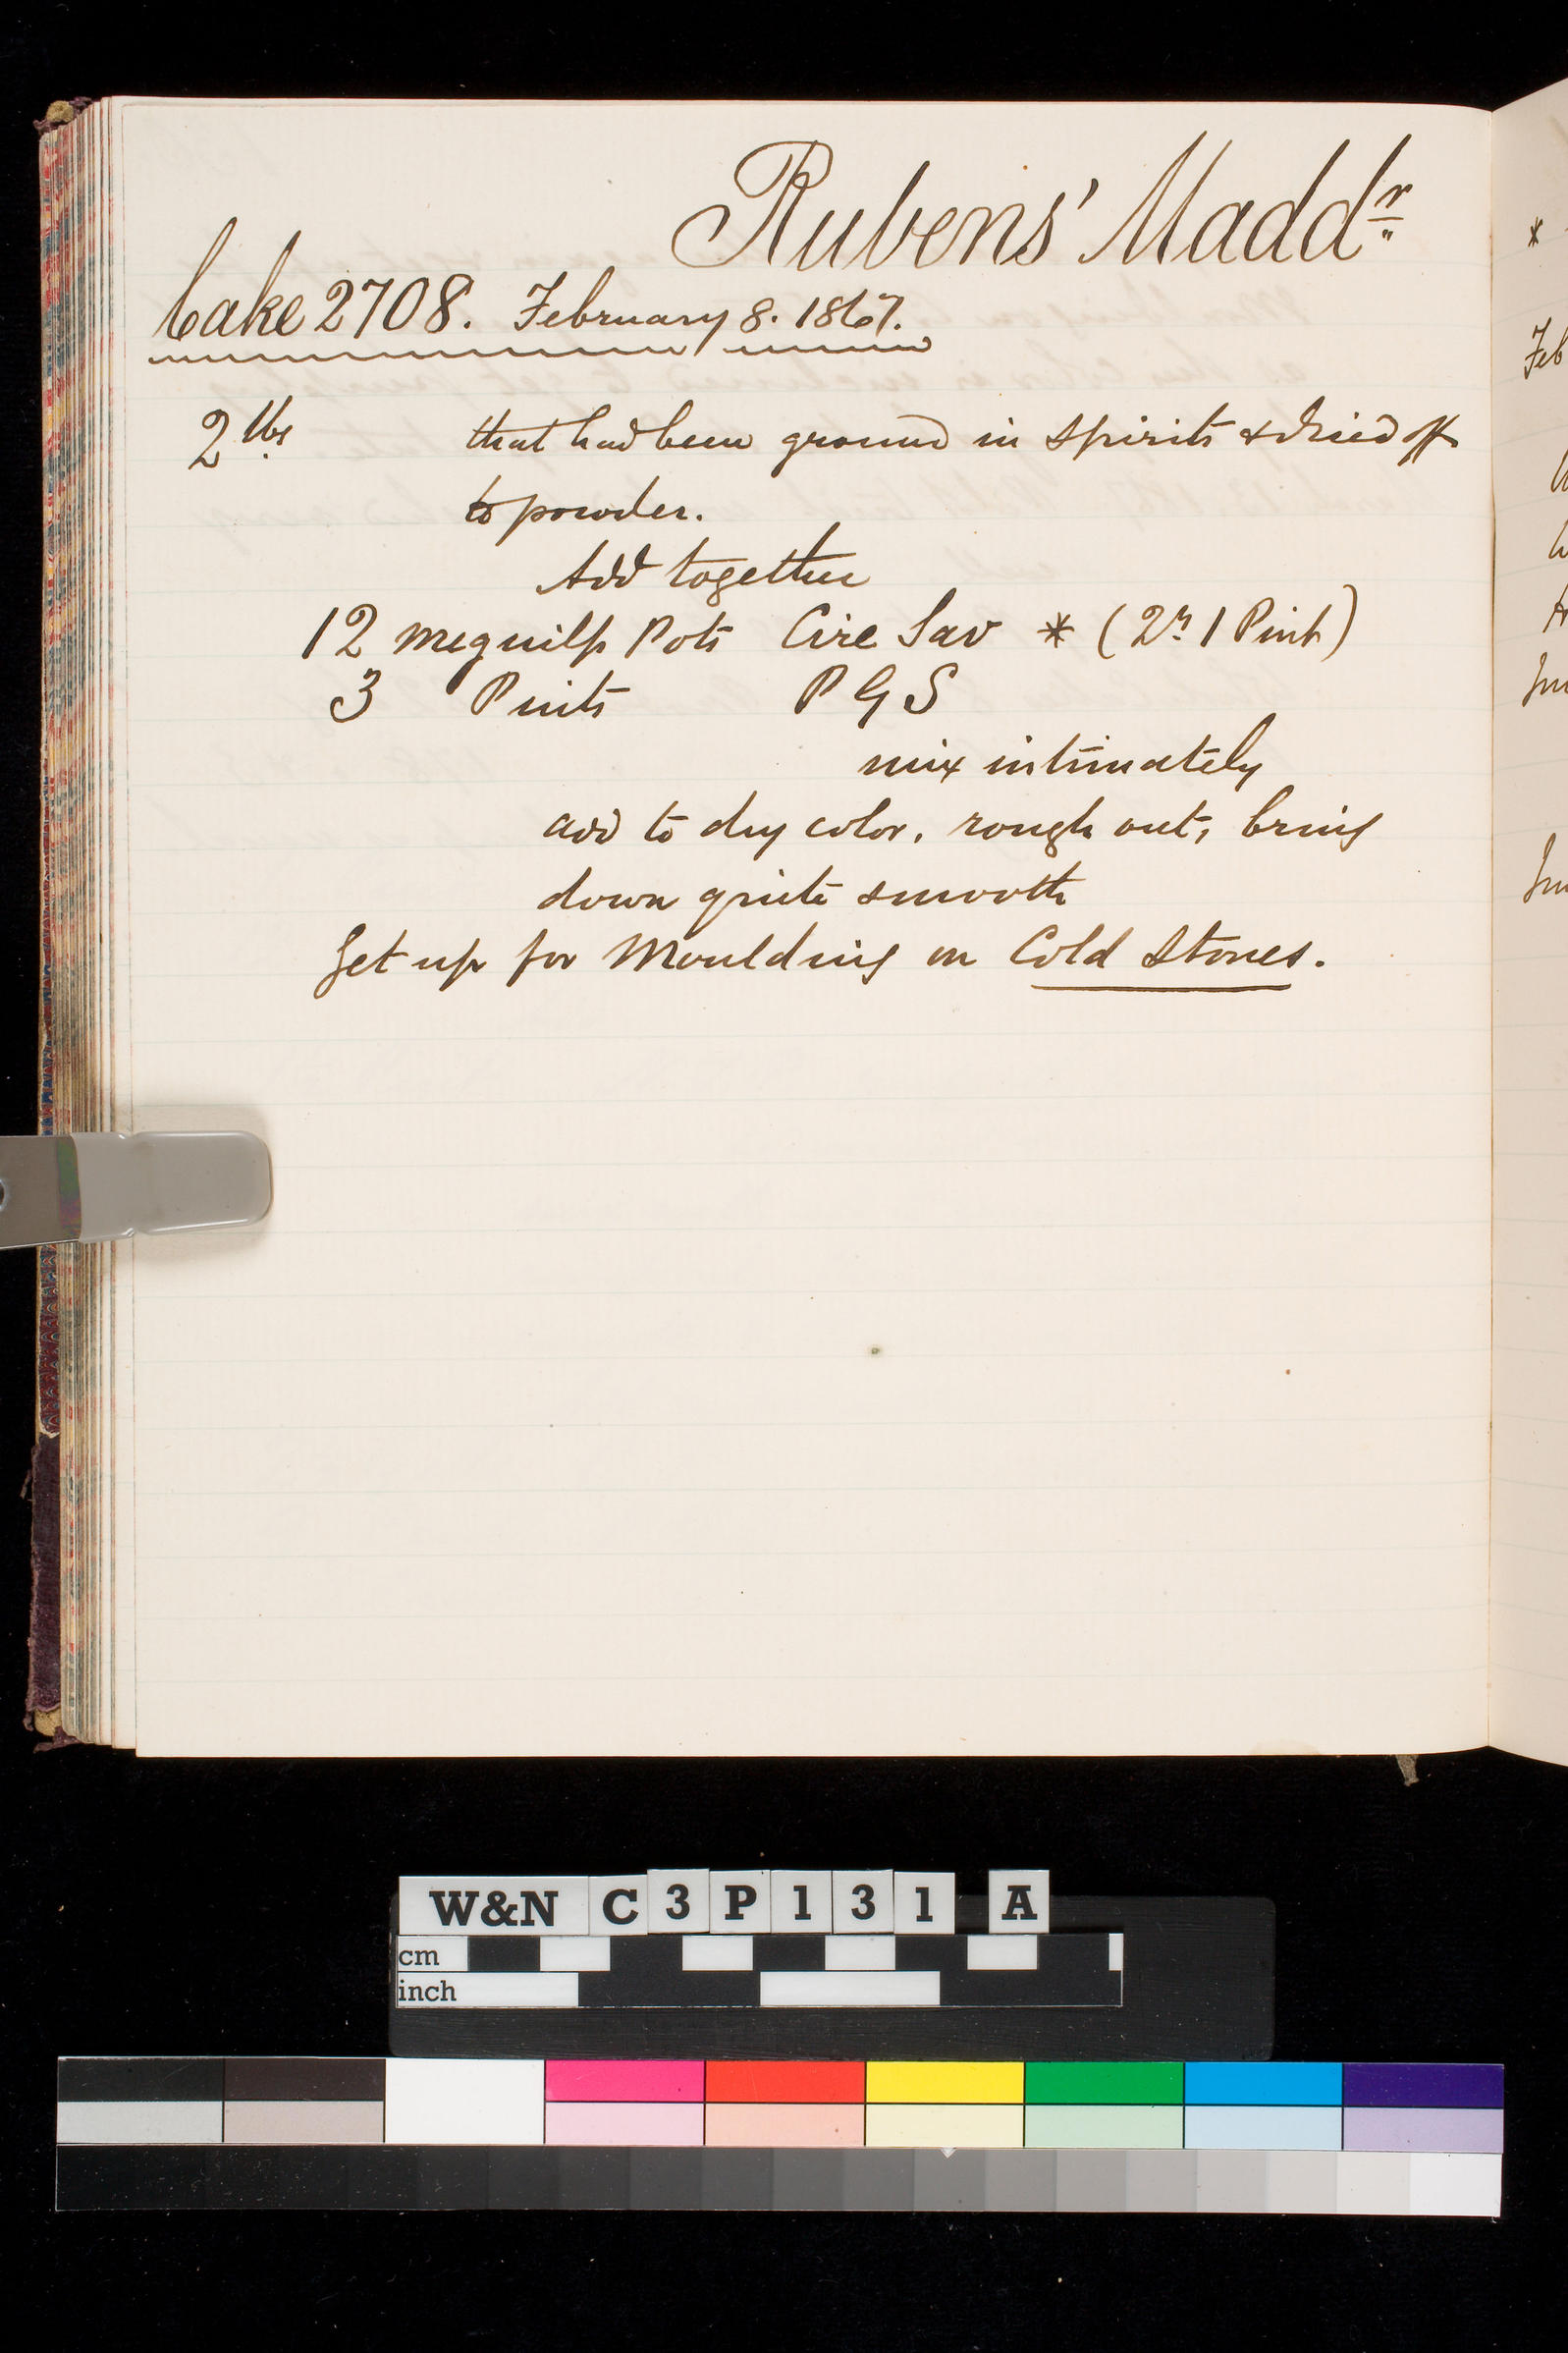 Rubens' Madd^r
Cake 2708. February 8. 1867.
2 lbs that had been ground in spirits & dried off
to powder.
Add together
12 meguilp Pots Cire Sav * (2 1 Pint)
3 Pints P G S
mix intimately
add to dry color, rough out, bring
down quite smooth
Get up for Moulding on Cold Stones.
*
Feb
W&N C 3 P 1 3 1 A
cm
inch